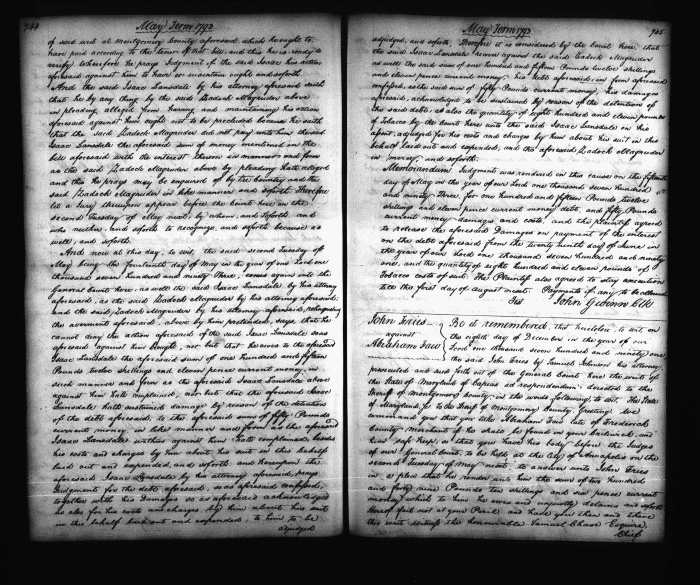 744
May Term 1793
of said writ at Montgomery County aforesaid, which he ought to
have paid according to the tenor of that bill, and this he is ready to
verify Wherefore he prays Judgement if the said Isaac his action
aforesaid against him to have or maintain ought and soforth.
And the said Isaac Lansdale by his attorney aforesaid saith
that he by any thing by the said Zadock Magruder above
in pleading alleged from having and maintaining his action
aforesaid against him ought not to be precluded because he saith
that the said Zadock Magruder did not pay unto him the said
Isaac Lansdale the aforesaid sum of money mentioned in the
bill aforesaid with the interest thereon in manner and form
as the said Zadock Magruder above by pleading hath alleged
and this he prays may be enquired of by the country and the
said Zadock Magruder in like manner and soforth Therefore
let a Jury thereupon appear before the Court here on the
second Tuesday of May next, by whom, and soforth and
who neither, and soforth to recognize, and soforth because as
well, and soforth.
And now at this day, to wit, the said second Tuesday of
May being the fourteenth day of May in the year of our Lord one
thousand seven hundred and ninety three, comes again into the
General Court here, as well the said Isaac Lansdale, by his attorney
aforesaid, as the said Zadock Magruder by his attorney aforesaid,
and the said Zadock Magruder by his attorney aforesaid, relinquishing
the averment aforesaid, above by him pretended, says that he
cannot deny the action aforesaid of the said Isaac Lansdale
aforesaid against him thought, nor but that he owes to the aforesaid
Isaac Lansdale the aforesaid sum of one Hundred and fifteen
Pounds twelve shillings and eleven pence current money, in
such manner and form as the aforesaid Isaac Lansdale above
against him hath complained, nor but that the aforesaid Isaac
Lansdale hath sustained damage by reason of the detention
of the debt aforesaid to the aforesaid sum of fifty Pounds
current money in like manner and form as the aforesaid
Isaac Lansdale within against him hath complained, besides
his costs and charges by him about his suit in this behalf
laid out and expended, and soforth. and hereupon the
aforesaid Isaac Lansdale by his attorney aforesaid, prays
Judgment for the debt aforesaid, so as aforesaid confessed,
together with his Damages so as aforesaid acknowledged
as also for his costs and charges by him about his suit
in this behalf laid out and expended, to him to be
adjudged
May Term 1793
745
adjudged, and soforth Therefore it is considered by the Court here, that
the said Isaac Lansdale recover against the said Zadock Magruder
as well the said sum of one hundred and fifteen Pounds twelve shillings
and eleven pence current money, his debt aforesaid, in form aforesaid
confessed, as the said sum of fifty Pounds current money, his damages
aforesaid, acknowledged to be sustained by reason of the detention of
the said debt, as also the quantity of eight hundred and eleven pounds
of Tobacco by the Court here unto the said Isaac Lansdale on his
assent, adjudged for his costs and charges by him about his suit in this
behalf laid out and expended, and the aforesaid Zadock Magruder
in mercy, and soforth.
Memorandum Judgment was rendered in this cause on the fifteenth
day of May in the year of our Lord one thousand seven hundred
and ninety three, for one hundred and fifteen Pounds twelve
shillings and eleven pence current money debt, and fifty Pounds
current money damages and costs, and the plaintiff agreed
to release the aforesaid Damages on payment of the interest
on the debt aforesaid from the twenty ninth day of June in
the year of our Lord one thousand seven hundred and ninety
one, and the quantity of eight hundred and eleven pounds of
Tobacco costs of suit. The Plaintiff also agreed to stay execution
till the first day of august next. Payments if any to be allowed
Test John Gwinn Clk
John Fries
against
Abraham Faw
Be it remembered, that heretofore, to wit, on
the eighth day of December in the year of our
Lord one thousand seven hundred and ninety one
the said John Fries by Samuel Johnson his attorney,
prosecuted and sued forth out of the General Court here the writ of
the State of Maryland of Capias ad respondendum directed to the
Sheriff of Montgomery County, in the words following, to wit. The State
of Maryland, to the Sheriff of Montgomery County, Greeting We
command you that you take Abraham Faw late of Frederick
County Merchant if he shall be found in your bailiwick, and
him safe keep, so that you have his body before the Judges
of our General Court, to be held at the City of Annapolis on the
second Tuesday of May next, to answer unto John Fries
in a plea that he render unto him the sum of two hundred
forty nine Pounds ten shillings and six pence current
money which to him he owes and unjustly detains and soforth
Hereof fail not at your Peril and have you then and there
this writ. Witness the Honourable Samuel Chase Esquire,
Chief